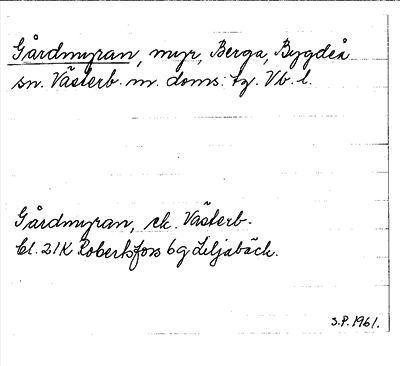 Gårdmyran, myr, Berga, Bygdeå
sn. Västerb. m. doms. tg. Vb. l.
Gårdmyran, ek. Västerb.
bl. 21K Robertsfors 6g Liljabäck.
S.P. 1961.